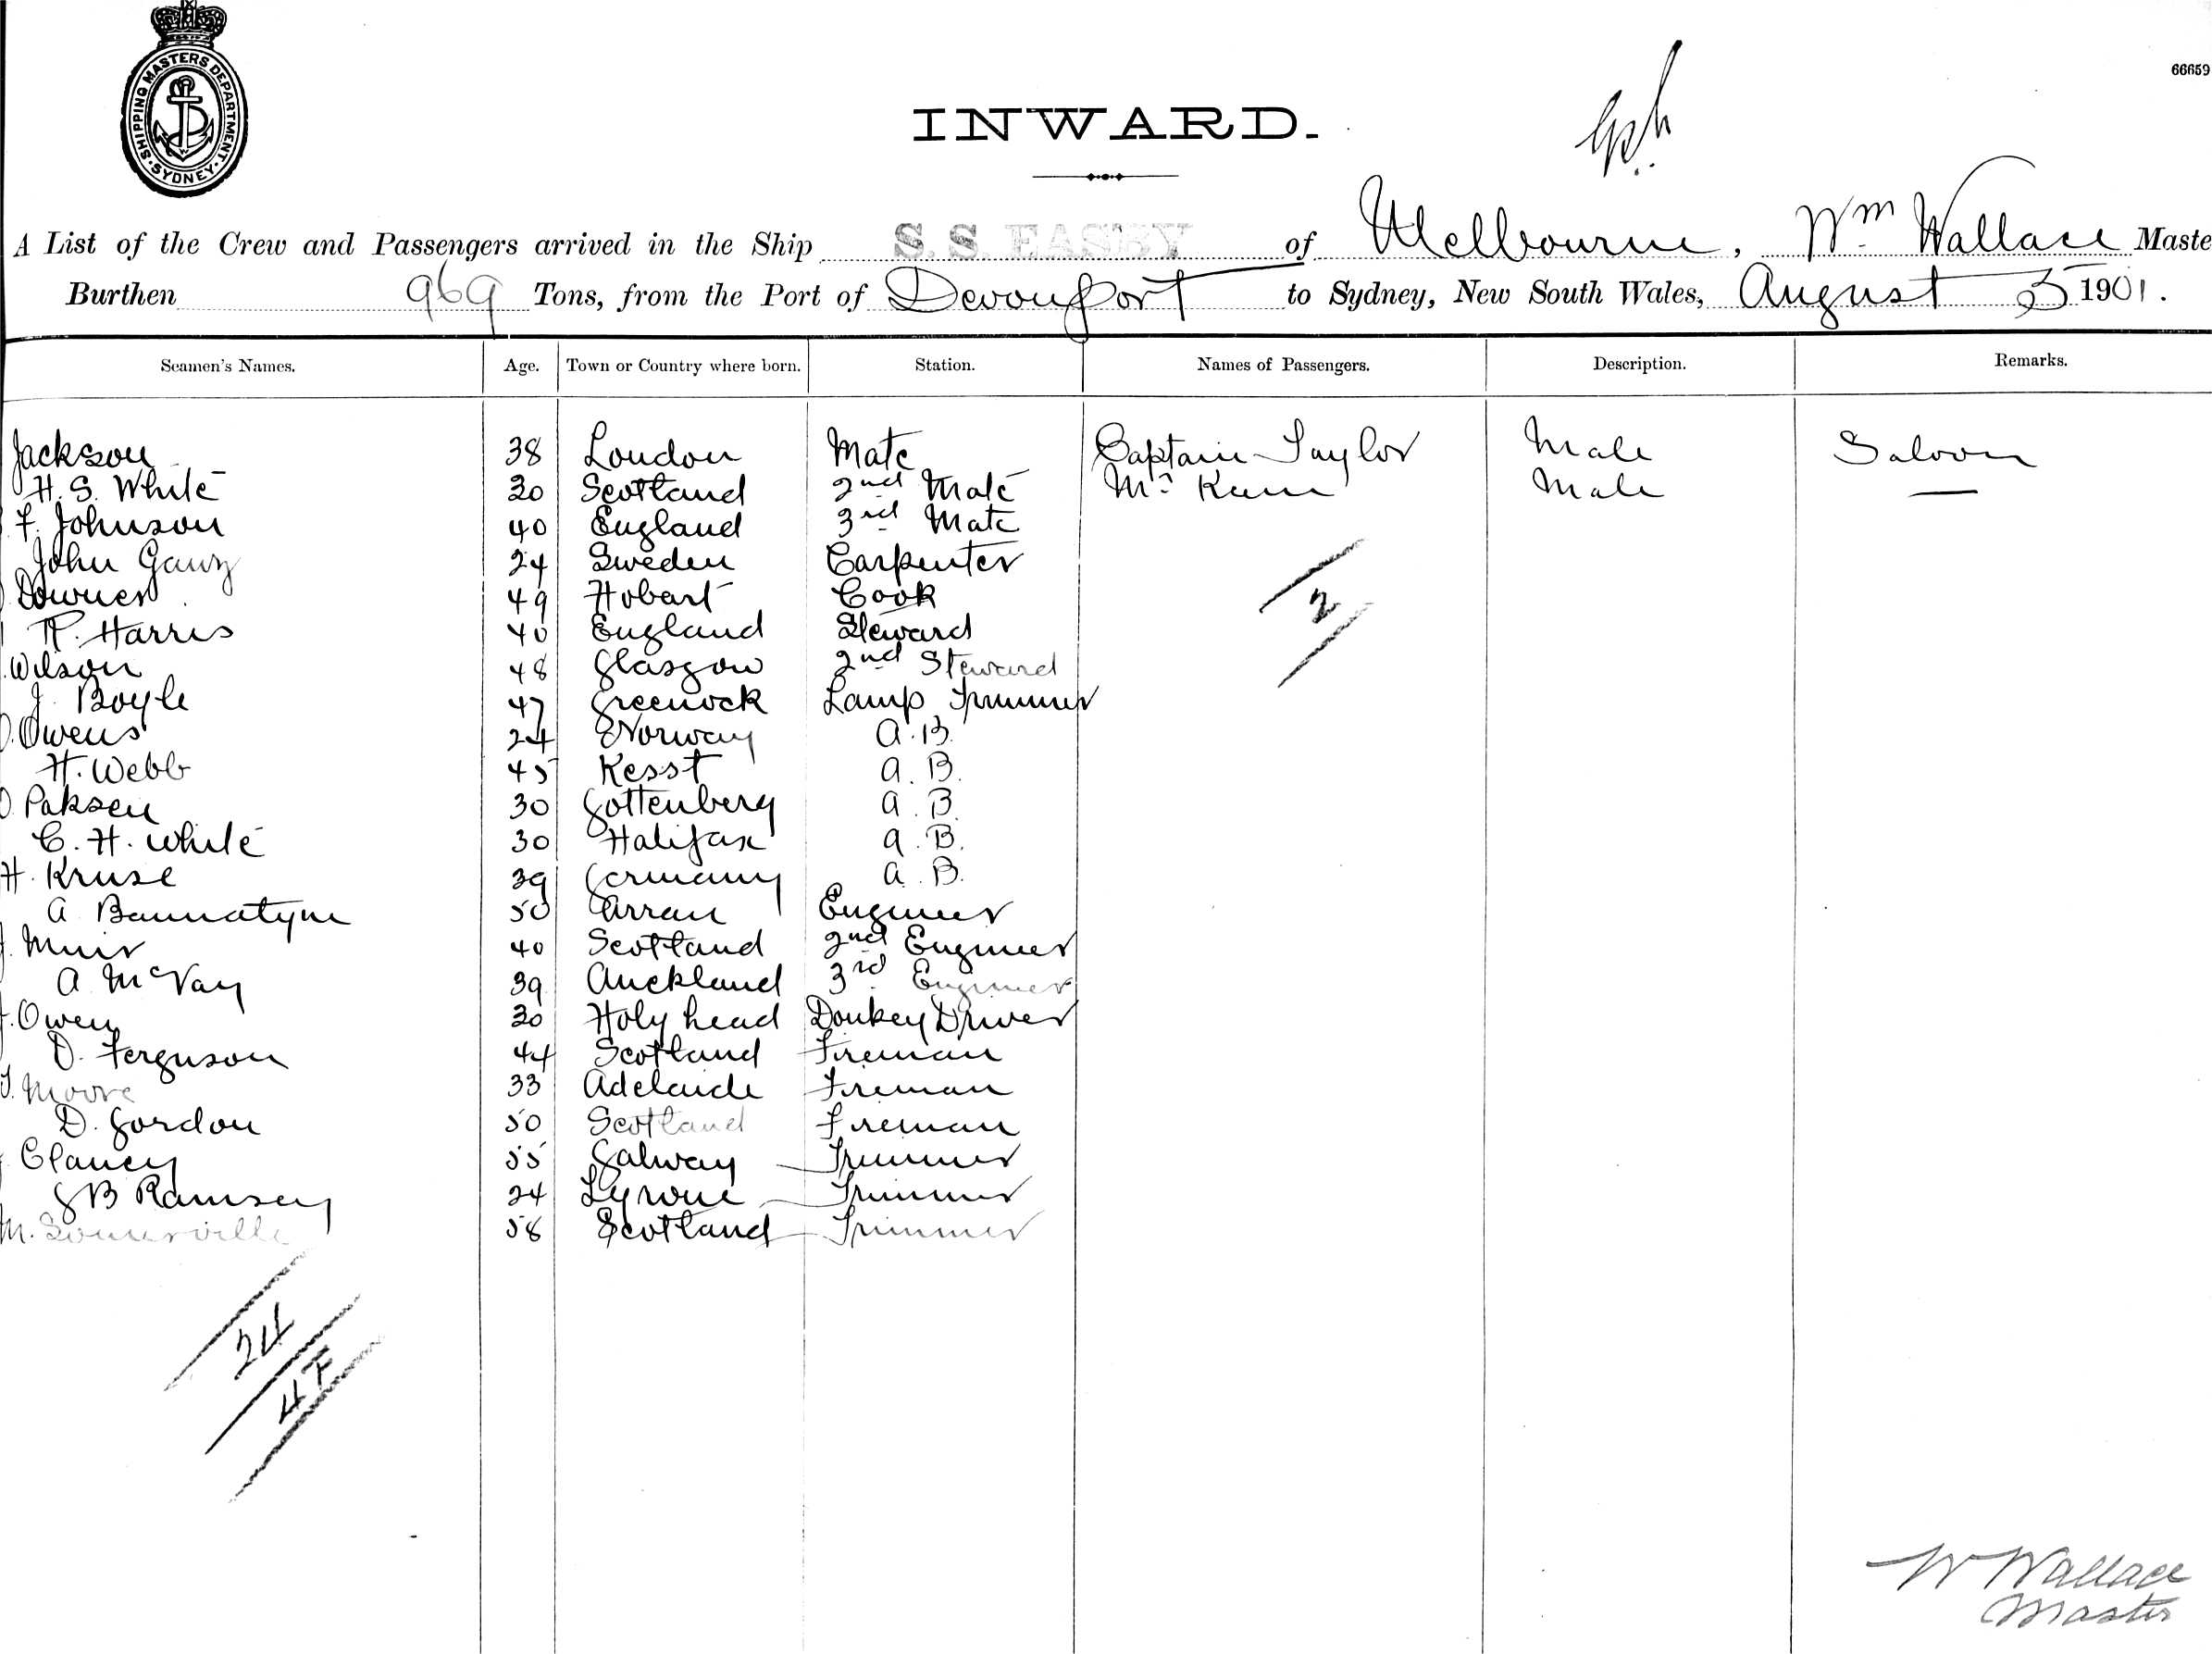 SHIPPING MASTERS DEPARTMENT
SYDNEY
66659
INWARD.
A List of the Crew and Passengers arrived in the Ship S. S. EASBY of Melbourne, Wm Wallace Maste
Burthen 969 Tons, from the Port of Devonport to Sydney, New South Wales, August 5 1901.
Seamen's Names. Age. Town or Country where born. Station. Names of Passengers. Description. Remarks.
Jackson 38 London Mate Captain Taylor Male Saloon
H. S. White 30 Scotland 2nd Mate Mr Male —
F. Johnson 40 England 3rd Mate
John 24 Sweden Carpenter
Downer 49 Hobart Cook
2
R. Harris 40 England Steward
Wilson 48 Glasgow 2nd Steward
J. Boyle 47 Greenock Lamp Trimmer
O. Owens 24 Norway A. B.
H. Webb 45 Kesst A. B.
Paksen 30 Gottenberg A. B.
C. H. White 30 Halifax A. B.
H. Kruse 39 Germany A. B.
A Bannatyne 50 Arran Engineer
J. Muir 40 Scotland 2nd Engineer
A McVay 39 Auckland 3rd Engineer
J. Owen 30 Holy head Donkey Driver
D. Ferguson 44 Scotland Fireman
T. Moore 33 Adelaide Fireman
D. Gordon 50 Scotland Fireman
Clancy 55 Galway Trimmer
J B Ramsey 24 Tyrone Trimmer
M. Somerville 58 Scotland Trimmer
24
W Wallace
Master